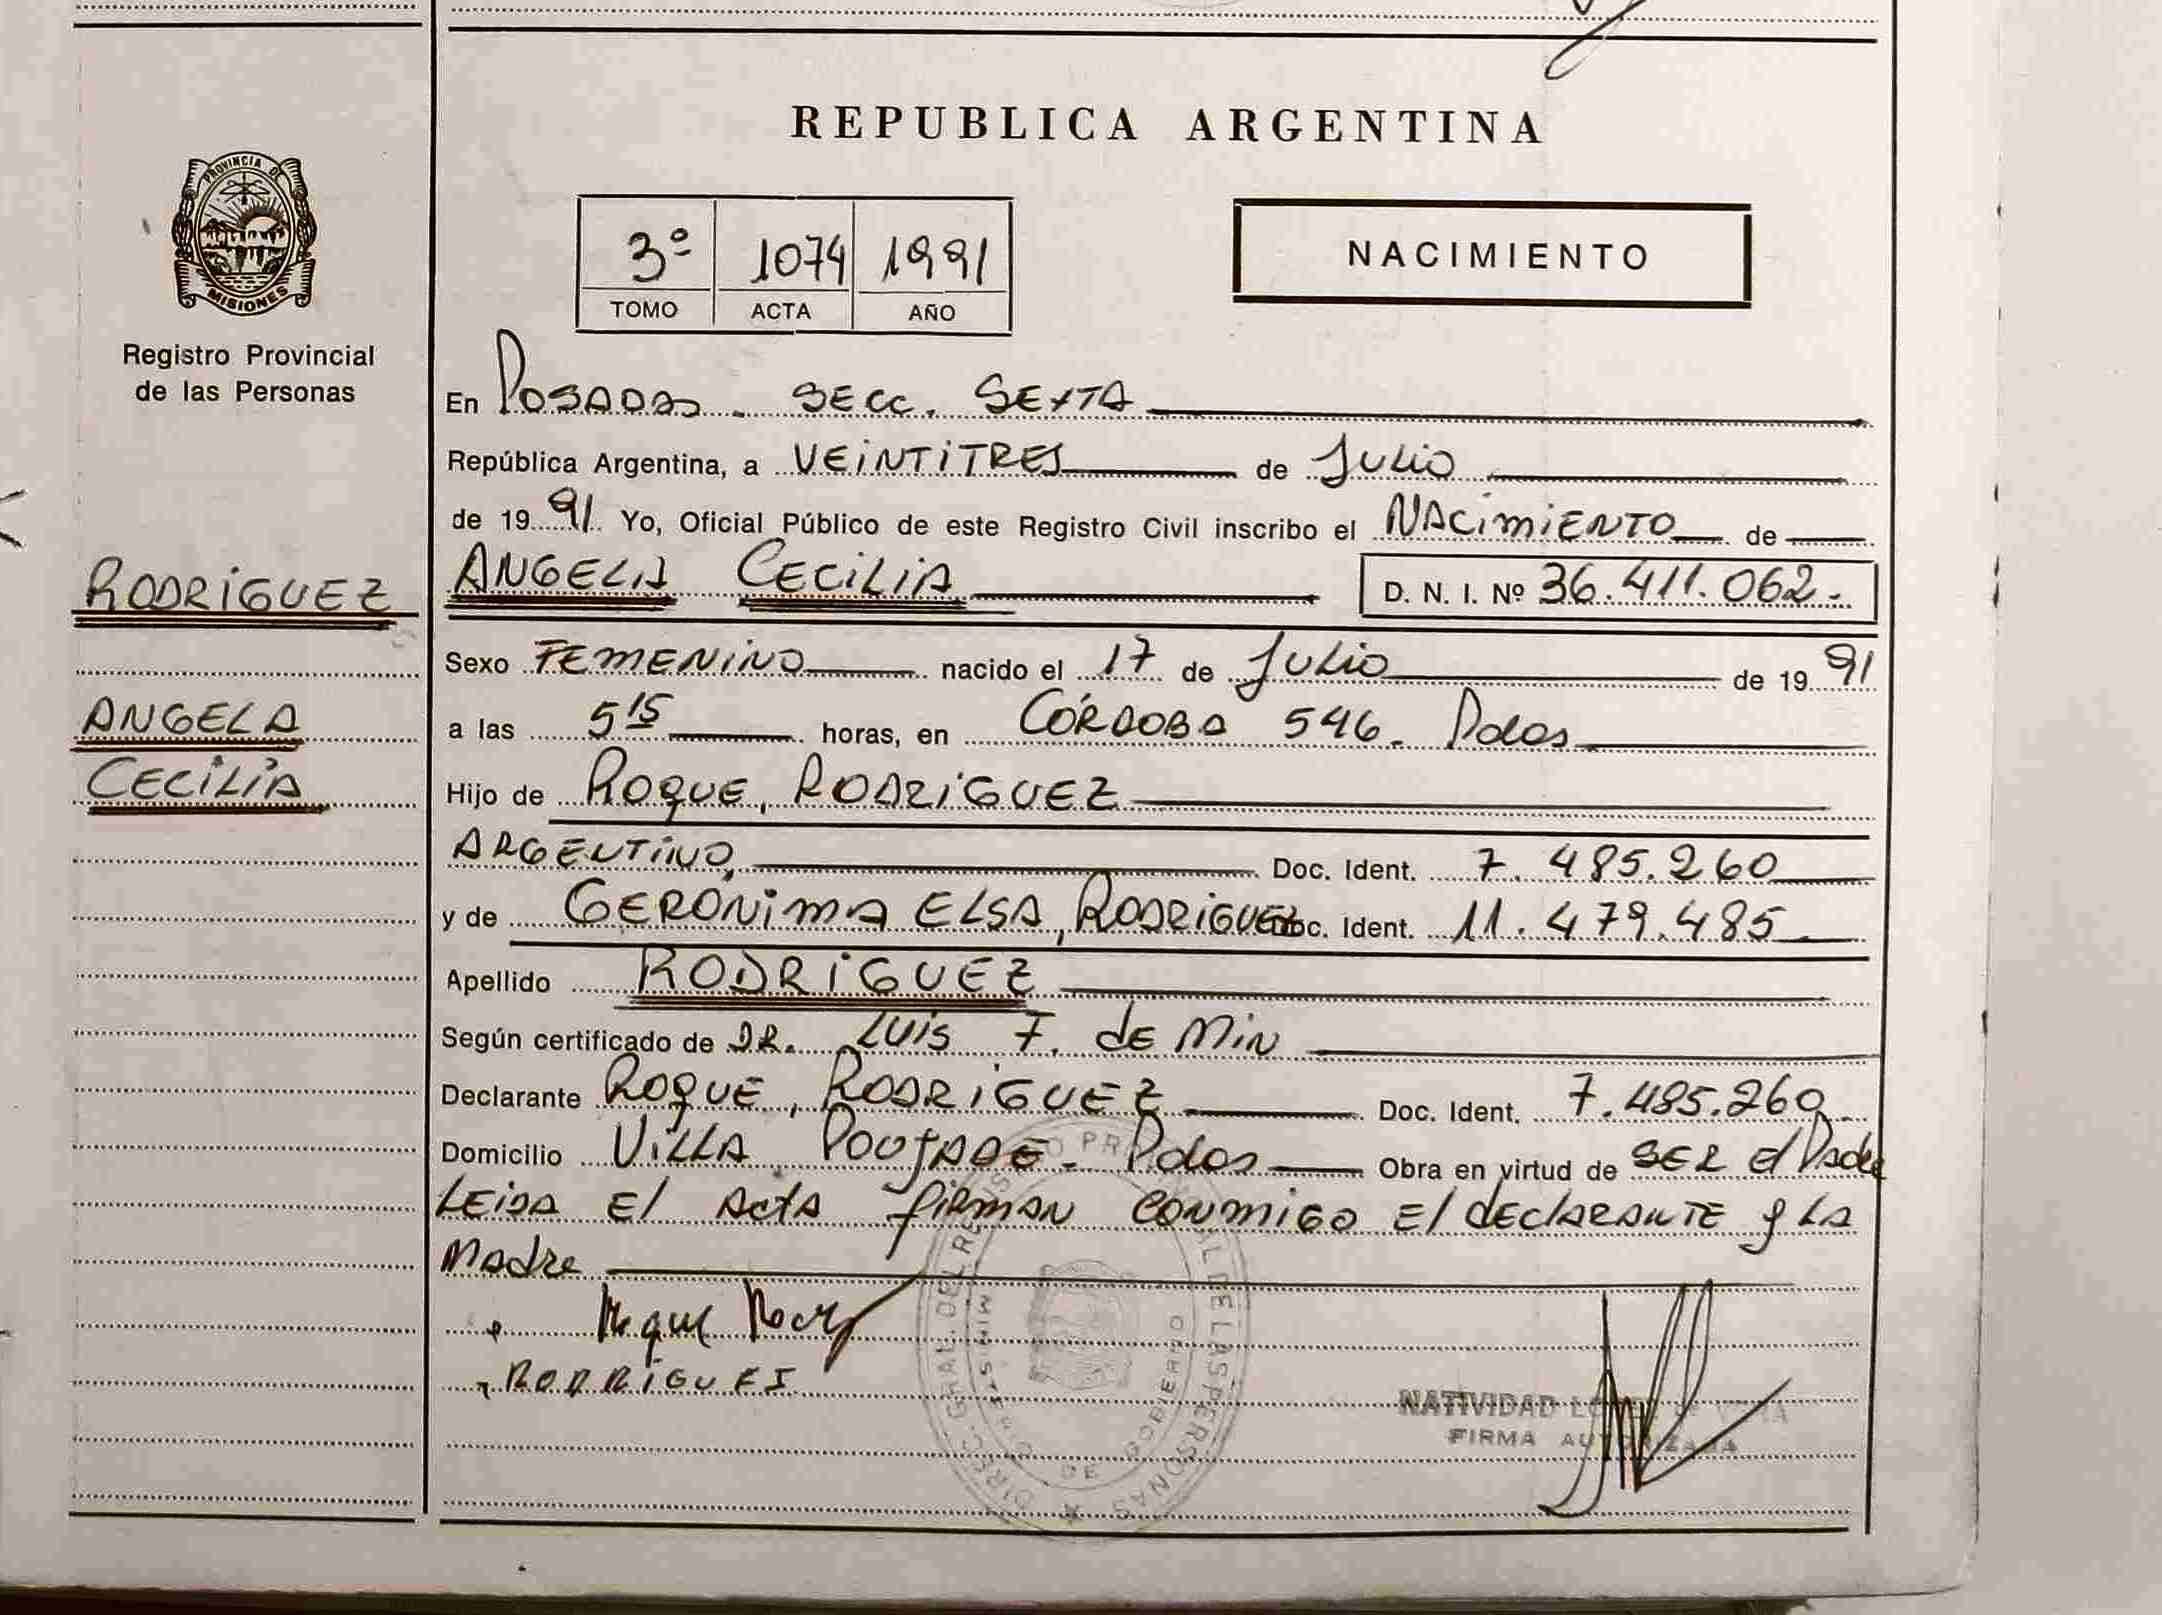 REPUBLICA ARGENTINA
PROVINCIA DE
MISIONES
Registro Provincial
de las Personas
3º 1074 1991
TOMO ACTA AÑO
NACIMIENTO
En POSADAS. SECC. SEXTA
República Argentina, a VEINTITRES de JULIO
de 1991 Yo, Oficial Público de este Registro Civil inscribo el NACIMIENTO de
RODRIGUEZ
ANGELA CECILIA D. N. I. Nº 36.411.062.-
Sexo FEMENINO nacido el 17 de JULIO de 1991
ANGELA
a las 5 15 horas, en CÓRDOBA 546. Pdas
CECILIA
Hijo de ROQUE, RODRIGUEZ
ARGENTINO, Doc. Ident. 7.485.260
y de GERÓNIMA ELSA, RODRIGUEZ Doc. Ident. 11.479.485
Apellido RODRIGUEZ
Según certificado de DR. LUIS F. de Min
Declarante ROQUE, RODRIGUEZ Doc. Ident. 7.485.260
Domicilio VILLA POUJADE - Pdas Obra en virtud de SER el Padre
LEIDA El Acta firman conmigo El declarante y LA
Madre
RODRIGUEZ
NATIVIDAD
FIRMA AUTORIZADA
DIREC. GRAL. DEL REGISTRO PROVINCIAL DE LAS PERSONAS
MINISTERIO DE GOBIERNO